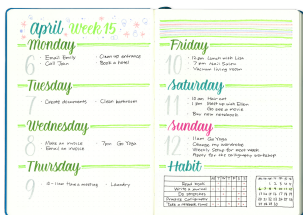 April Week 15
Monday
6
· Email Emily
· Call Joan
· Clean up entrance
· Book a hotel
Tuesday
7
· Create documents
· Clean bathroom
Wednesday
8
· Make an invoice
· Email an invoice
· 7pm Go Yoga
Thursday
9
· 11am Meeting
· Laundry
Friday
10
· 12pm Lunch with Lisa
· 7pm Nail Salon
· Vacuum living room
Saturday
11
· 10am Hair cut
· 1pm Meet up with
· Go see a movie
· Buy new notebook
Sunday
12
· 11am Go Yoga
· Change my wardrobe
· Weekly setup for next week
· Apply for the calligraphy workshop
Habit
Read books
Write a journal
Practice Calligraphy